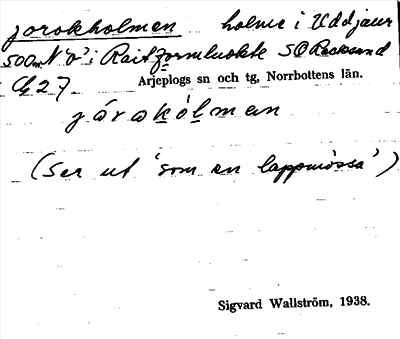 jorokholmen holme i Uddjaur
500m N O i Rait SO
G27 Arjeplogs sn och tg, Norrbottens län.
járakólman
(Ser ut 'som en lappmössa')
Sigvard Wallström, 1938.